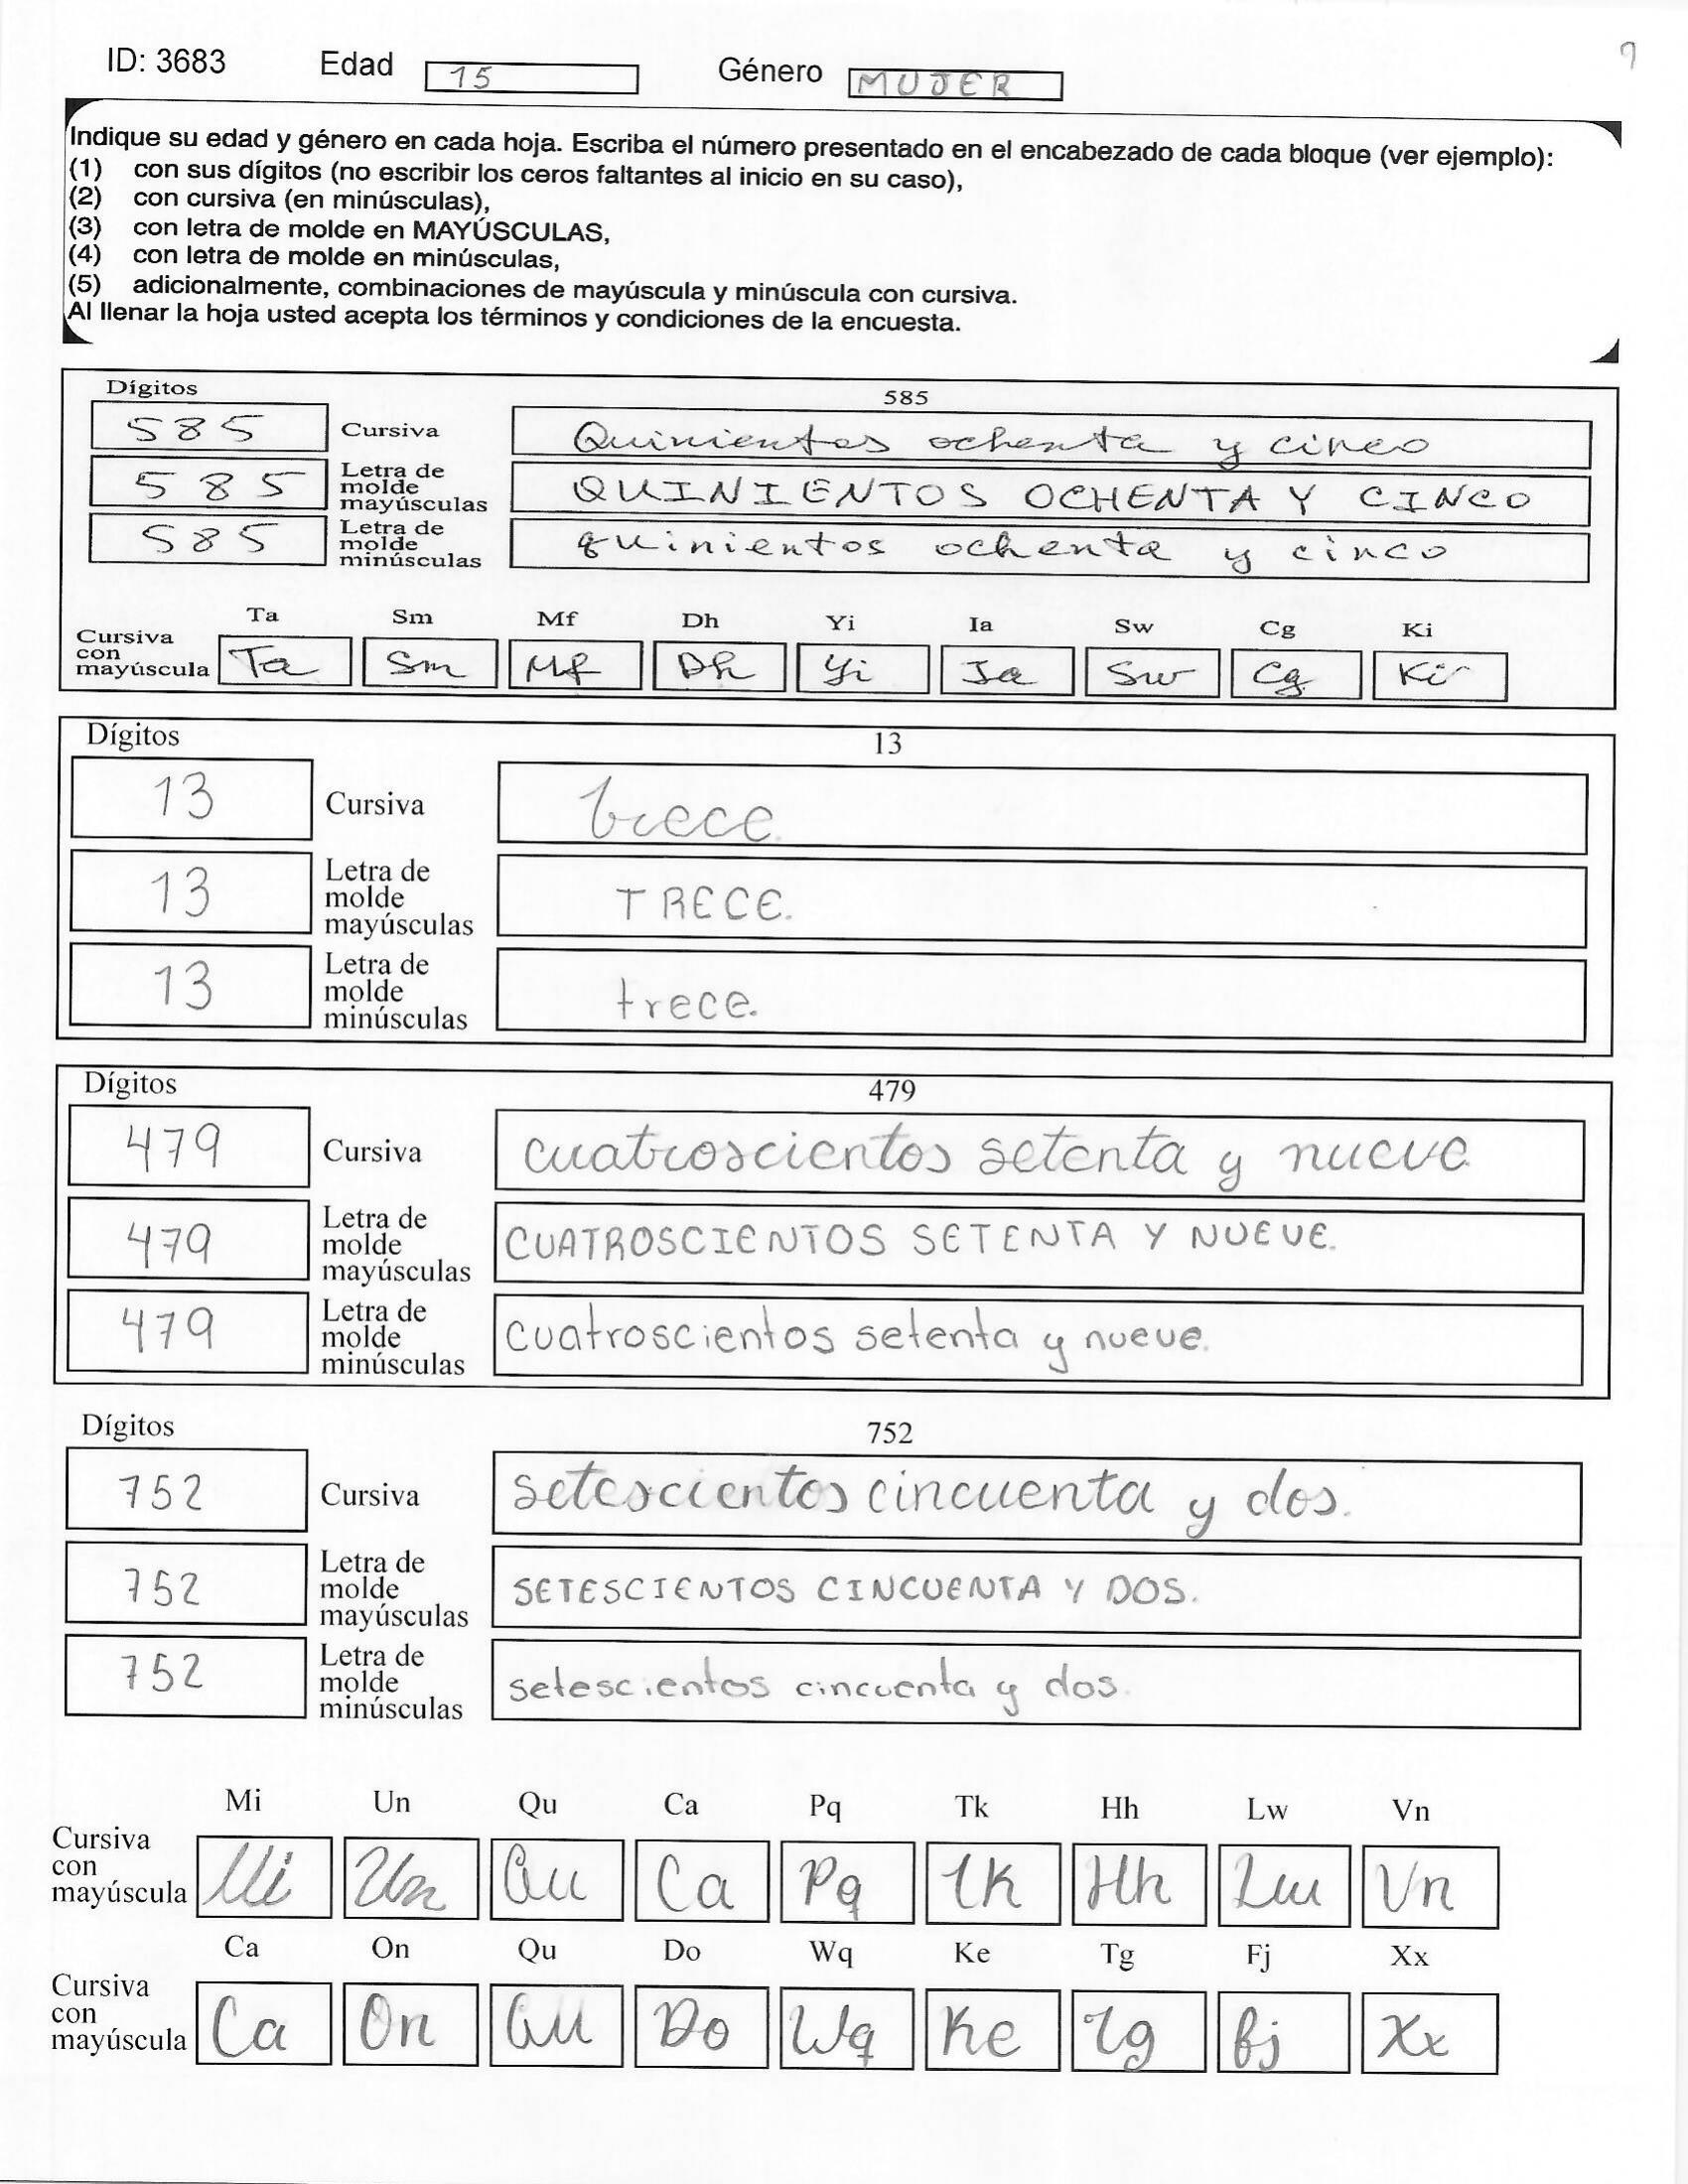 ID: 3683 Edad 15 Género MUJER 9
Indique su edad y género en cada hoja. Escriba el número presentado en el encabezado de cada bloque (ver ejemplo):
(1) con sus dígitos (no escribir los ceros faltantes al inicio en su caso),
(2) con cursiva (en minúsculas),
(3) con letra de molde en MAYÚSCULAS,
(4) con letra de molde en minúsculas,
(5) adicionalmente, combinaciones de mayúscula y minúscula con cursiva.
Al llenar la hoja usted acepta los términos y condiciones de la encuesta.
Dígitos 585
585 Cursiva Quinientos ochenta y cinco
585 Letra de molde mayúsculas QUINIENTOS OCHENTA Y CINCO
585 Letra de molde minúsculas quinientos ochenta y cinco
Ta Sm Mf Dh Yi Ia Sw Cg Ki
Cursiva con mayúscula Ta Sm Mf Dh Yi Ia Sw Cg Ki
Dígitos 13
13 Cursiva trece.
13 Letra de molde mayúsculas TRECE.
13 Letra de molde minúsculas trece.
Dígitos 479
479 Cursiva cuatroscientos setenta y nueve.
479 Letra de molde mayúsculas CUATROSCIENTOS SETENTA Y NUEVE.
479 Letra de molde minúsculas cuatroscientos setenta y nueve.
Dígitos 752
752 Cursiva setescientos cincuenta y dos.
752 Letra de molde mayúsculas SETESCIENTOS CINCUENTA Y DOS.
752 Letra de molde minúsculas setescientos cincuenta y dos.
Mi Un Qu Ca Pq Tk Hh Lw Vn
Cursiva con mayúscula Mi Un Qu Ca Pq Tk Hh Lw Vn
Ca On Qu Do Wq Ke Tg Fj Xx
Cursiva con mayúscula Ca On Qu Do Wq Ke Tg Fj Xx